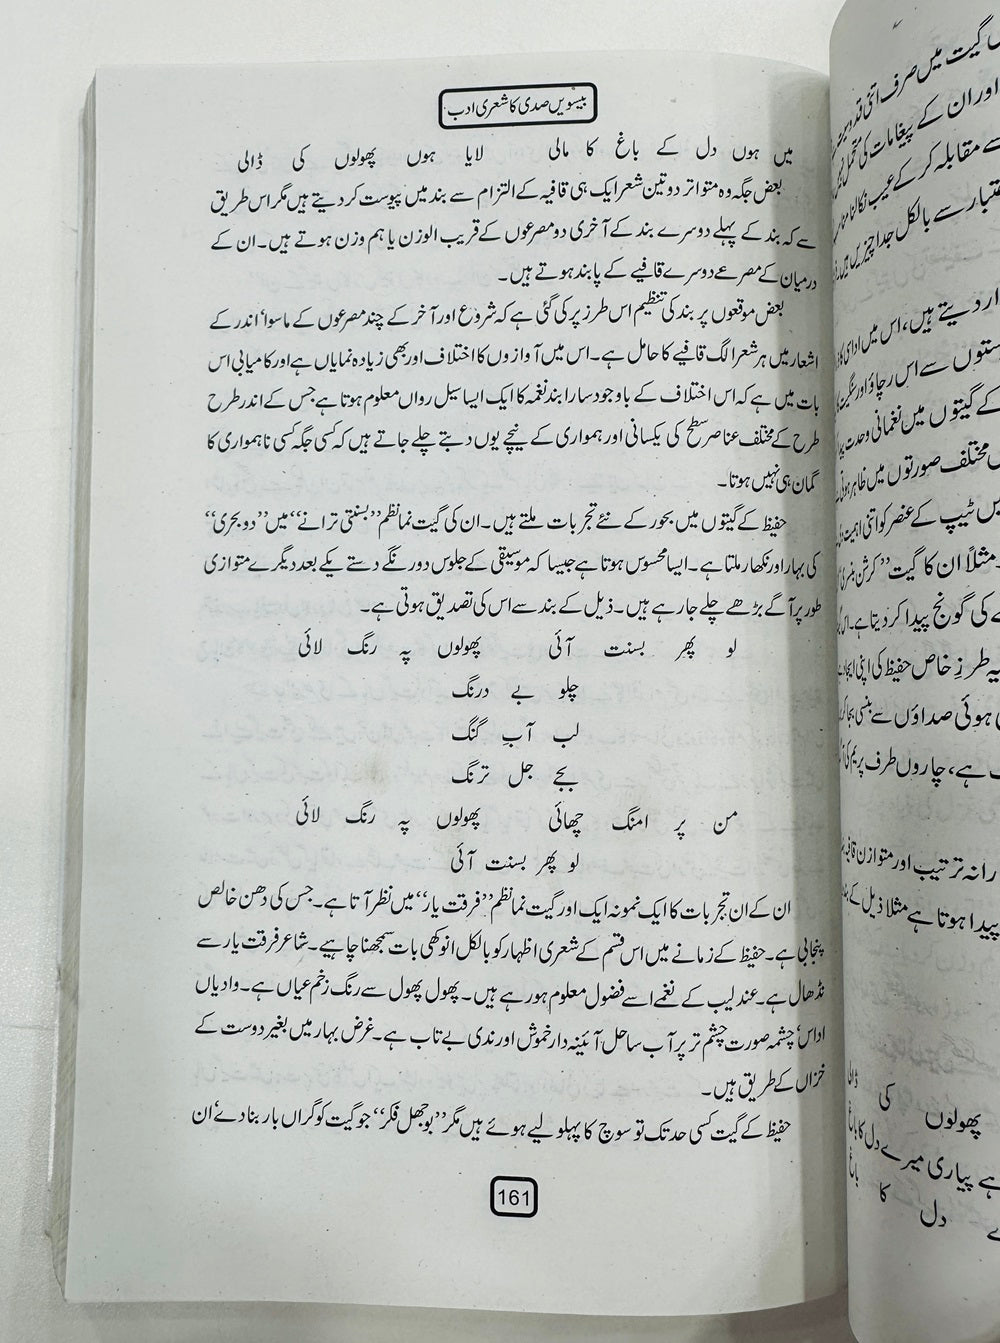 بیسویں صدی کا شعری ادب
میں ہوں دل کے باغ کا مالی لایا ہوں پھولوں کی ڈالی
بعض جگہ وہ متواتر دو تین شعر ایک ہی قافیہ کے التزام سے بند میں پیوست کر دیتے ہیں مگر اس طریق
سے کہ بند کے پہلے دوسرے بند کے آخری دو مصرعوں کے قریب الوزن یا ہم وزن ہوتے ہیں۔ ان کے
درمیان کے مصرعے دوسرے قافیے کے پابند ہوتے ہیں۔
بعض موقعوں پر بند کی تنظیم اس طرز پر کی گئی ہے کہ شروع اور آخر کے چند مصرعوں کے ماسوا‘ اندر کے
اشعار میں ہر شعر الگ قافیے کا حامل ہے۔ اس میں آوازوں کا اختلاف اور بھی زیادہ نمایاں ہے اور کامیابی اس
بات میں ہے کہ اس اختلاف کے باوجود سارا بند نغمہ کا ایک ایسا سیل رواں معلوم ہوتا ہے جس کے اندر طرح
طرح کے مختلف عناصر سطح کی یکسانی اور ہمواری کے نیچے یوں دبتے چلے جاتے ہیں کہ کسی جگہ کسی ناہمواری کا
گمان ہی نہیں ہوتا۔
حفیظ کے گیتوں میں بحور کے نئے تجربات ملتے ہیں۔ ان کی گیت نما نظم ’’بسنتی ترانے‘‘ میں ’’دو بحری‘‘
کی بہار اور نکھار ملتا ہے۔ ایسا محسوس ہوتا ہے جیسا کہ موسیقی کے جلوس دو رنگے دستے یکے بعد دیگرے متوازی
طور پر آگے بڑھے چلے جا رہے ہیں۔ ذیل کے بند سے اس کی تصدیق ہوتی ہے۔
لو پھر بسنت آئی پھولوں پہ رنگ لائی
چلو بے درنگ
لب آب گنگ
بجے جل ترنگ
من پر امنگ چھائی پھولوں پہ رنگ لائی
لو پھر بسنت آئی
ان کے ان تجربات کا ایک نمونہ ایک اور گیت نما نظم ’’فرقت یار‘‘ میں نظر آتا ہے۔ جس کی دھن خالص
پنجابی ہے۔ حفیظ کے زمانے میں اس قسم کے شعری اظہار کو بالکل انوکھی بات سمجھنا چاہیے۔ شاعر فرقت یار سے
نڈھال ہے۔ عندلیب کے نغمے اسے فضول معلوم ہو رہے ہیں۔ پھول پھول سے رنگ زخم عیاں ہے۔ وادیاں
اداس‘ چشمہ صورت چشم تر پر آب ساحل آئینہ دار خموش اور ندی بے تاب ہے۔ غرض بہار میں بغیر دوست کے
خزاں کے طریق ہیں۔
حفیظ کے گیت کسی حد تک تو سوچ کا پہلو لیے ہوئے ہیں مگر ’’بوجھل فکر‘‘ جو گیت کو گراں بار بنا دے‘ ان
161
گیت میں صرف اتنی
اور ان کے پیغامات کی
مقابلہ کر کے عیب نکالنا
سے بالکل جدا چیزیں ہیں
دیتے ہیں، اس میں
سے اس رچاؤ اور
کے گیتوں میں نغمانی وحدت
مختلف صورتوں میں ظاہر
ٹیپ کے عنصر کو اتنی اہمیت
مثلاً ان کا گیت ’’کرشن
کی گونج پیدا کر دیتا ہے۔
یہ طرزِ خاص حفیظ کی اپنی
ہوئی صداؤں سے بنسی
ہے، چاروں طرف پریم
ترتیب اور متوازن
پیدا ہوتا ہے مثلاً ذیل کے
پھولوں کی
پیاری میرے دل کا باغ
دل کا باغ